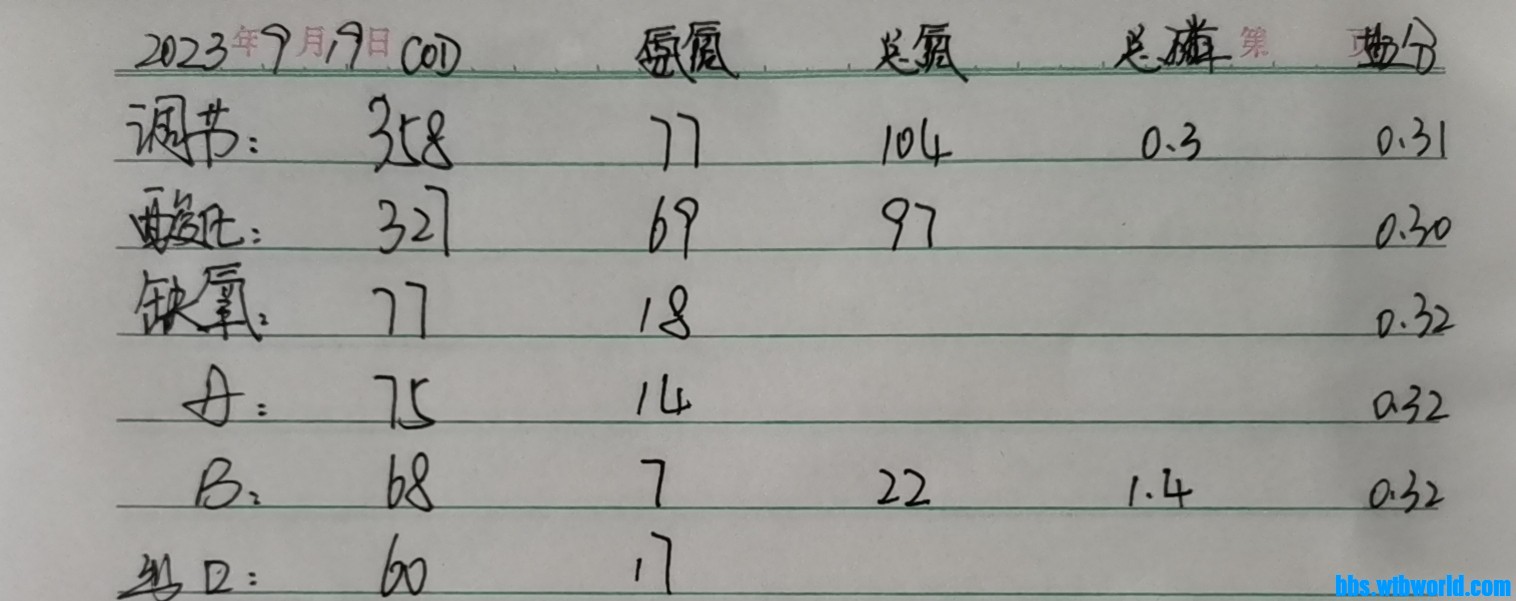 2023年9月19日 COD 氨氮 总氮 总磷 第 页 盐分
调节: 358 77 104 0.3 0.31
酸化: 327 69 97 0.30
缺氧: 77 18 0.32
A: 75 14 0.32
B: 68 7 22 1.4 0.32
口: 60 17
bbs.wthworld.com